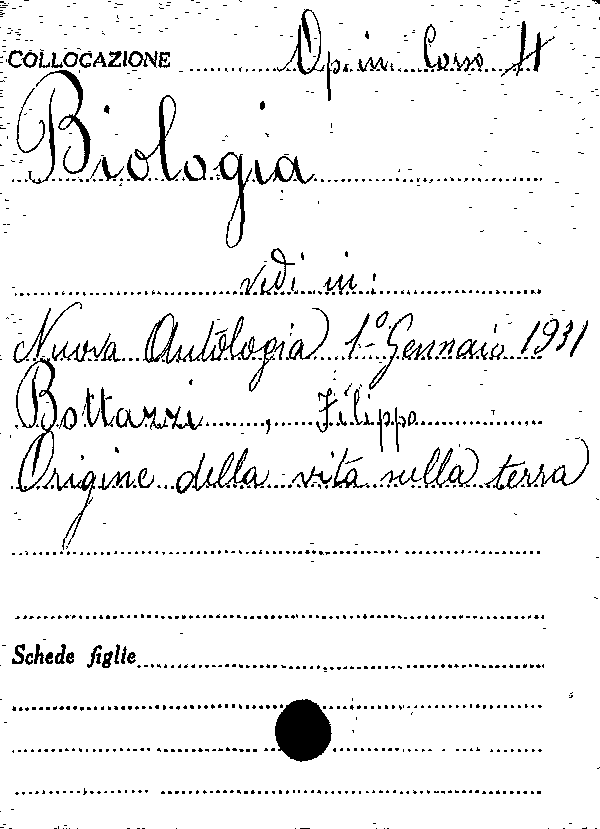 COLLOCAZIONE Op. in Corso H
Biologia
vedi in:
Nuova Antologia 1º Gennaio 1931
Bottazzi, Filippo
Origine della vita sulla terra
Schede figlie